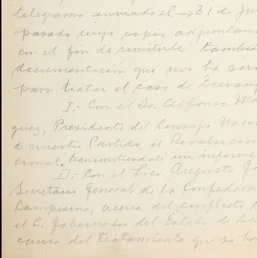 telegrama enviado el 31 de Ju
pasado cuya copia adjuntam
en el fin de remitirle también
documentación que nos ha serv
para tratar el caso de
I.- Con el Sr. Alfonso
guez, Presidente del Consejo Nacio
de nuestro Partido, el Revolucion
cional, transmitiendo un informe
II.- Con el Lic. Augusto
Secretario General de la Confedera
Campesina, acerca del conflicto
el C. Gobernador del Estado de
causa del tratamiento que se ha